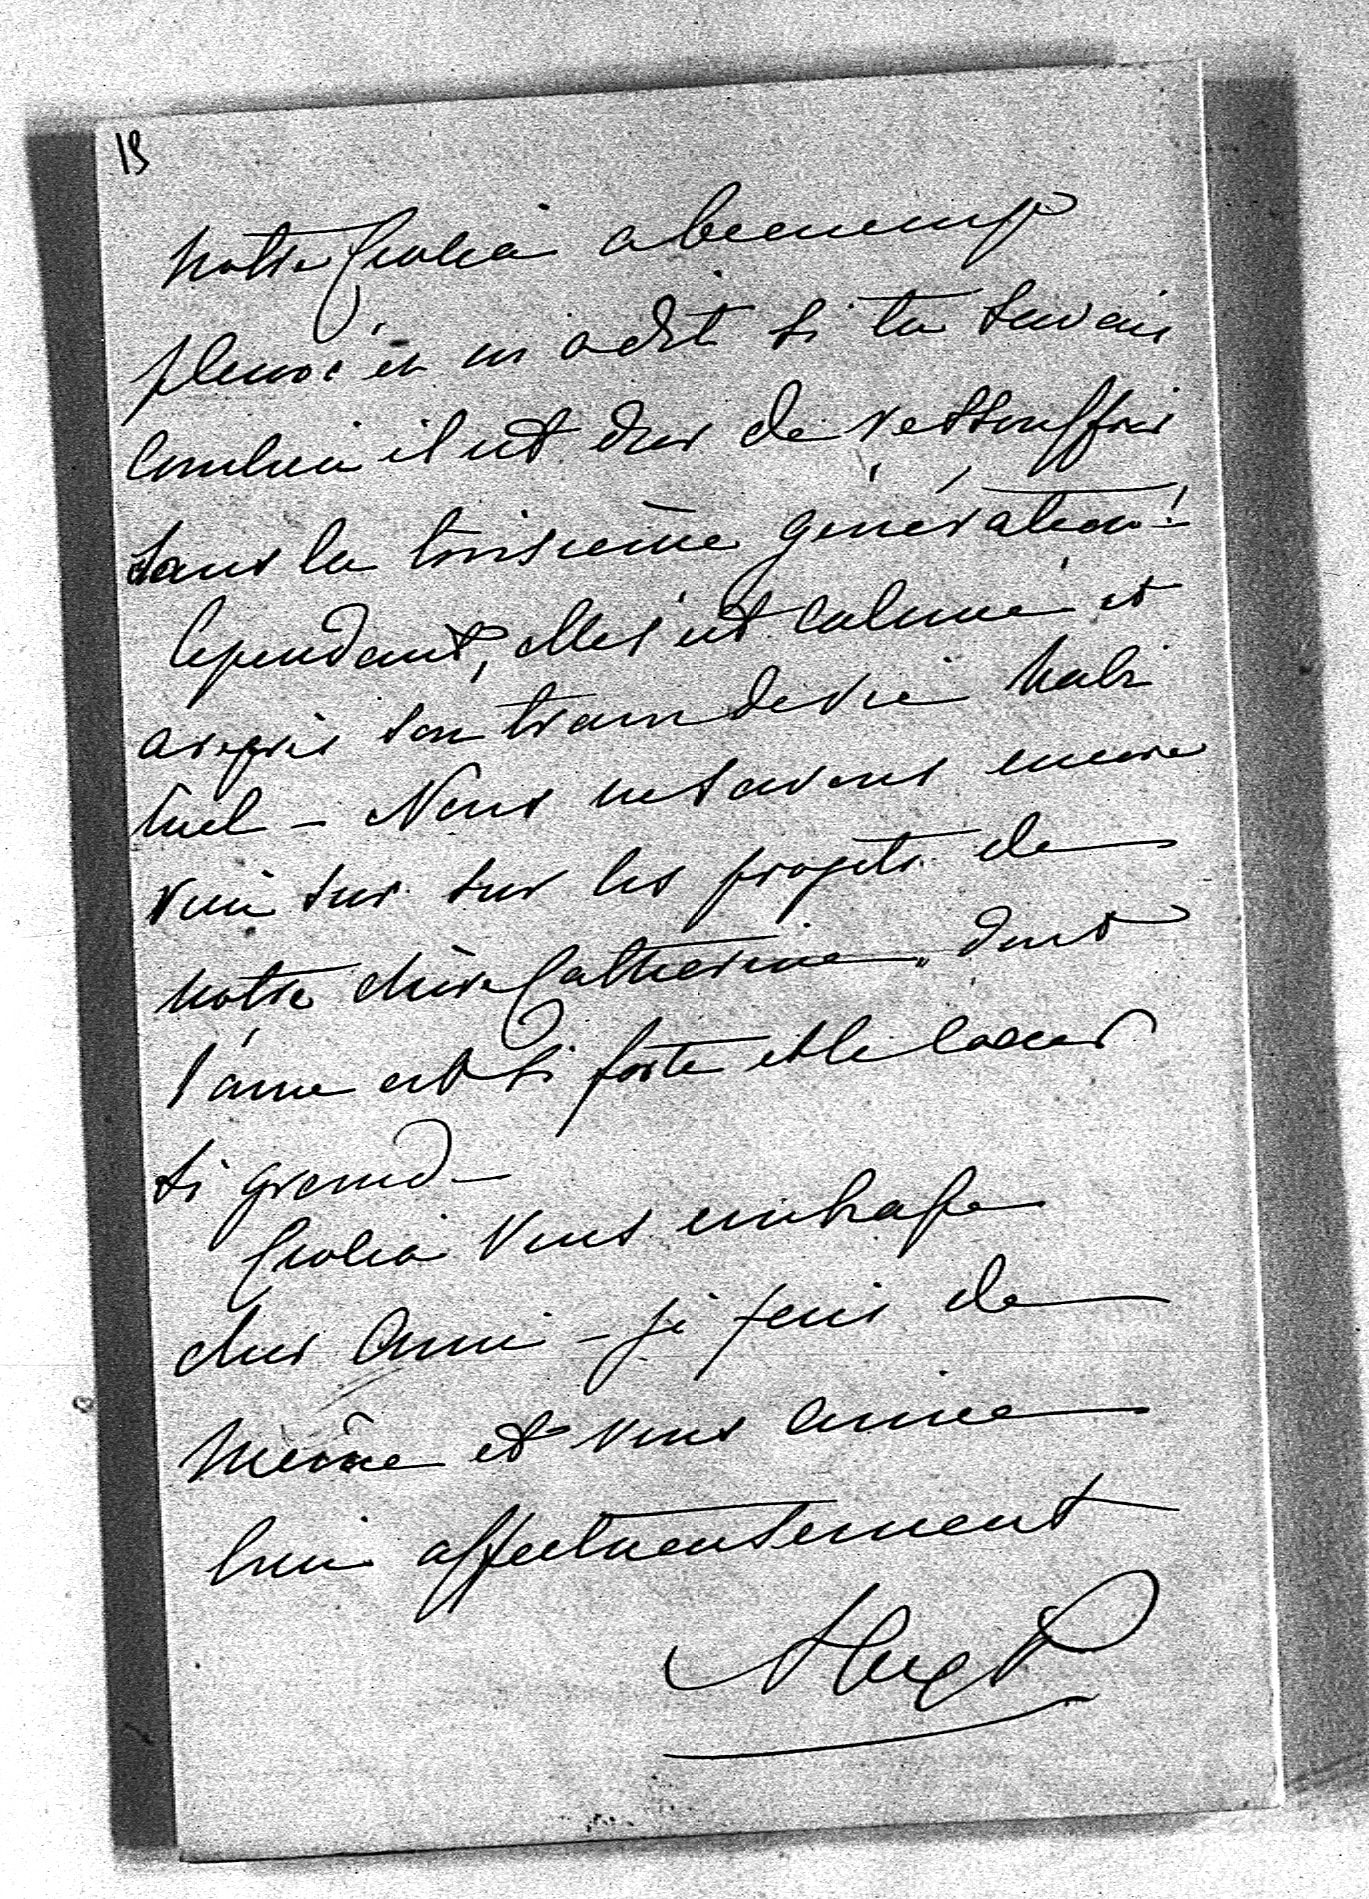 13
Notre Giulia a beaucoup
pleuré et m'a dit si tu savais
combien il est dur de ressouffrir
dans la troisième génération!
Cependant, elle s'est calmée et
a repris son train de vie habi
tuel – Nous ne savons encore
rien sur sur les projets de
notre chère Catherine. dont
l'âme est si forte et le coeur
si grand –
Giulia vous embrasse
cher Ami – je fais de
même et vous aime
bien affectueusement